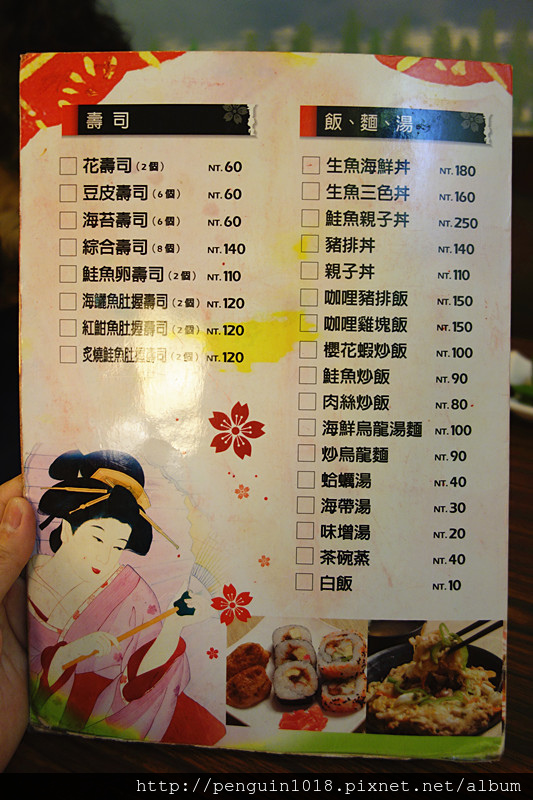 壽司
花壽司(2個) NT.60
豆皮壽司(6個) NT.60
海苔壽司(6個) NT.60
綜合壽司(8個) NT.140
鮭魚卵壽司(2個) NT.110
海鱺魚肚握壽司(2個) NT.120
紅魽魚肚握壽司(2個) NT.120
炙燒鮭魚肚握壽司(2個) NT.120
飯、麵、湯
生魚海鮮丼 NT.180
生魚三色丼 NT.160
鮭魚親子丼 NT.250
豬排丼 NT.140
親子丼 NT.110
咖哩豬排飯 NT.150
咖哩雞塊飯 NT.150
櫻花蝦炒飯 NT.100
鮭魚炒飯 NT.90
肉絲炒飯 NT.80
海鮮烏龍湯麵 NT.100
炒烏龍麵 NT.90
蛤蠣湯 NT.40
海帶湯 NT.30
味增湯 NT.20
茶碗蒸 NT.40
白飯 NT.10
http://penguin1018.pixnet.net/album